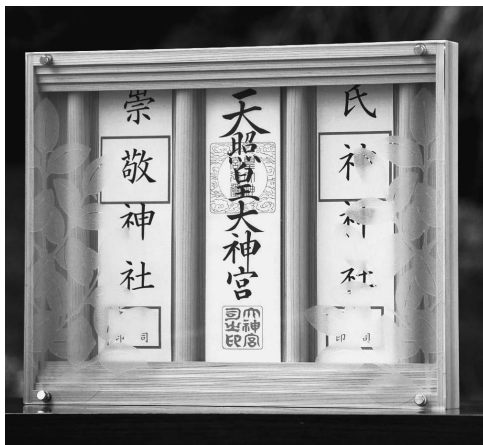 氏神神社
司
印
天照皇大神宮
大神宮
司之印
崇敬神社
司
印